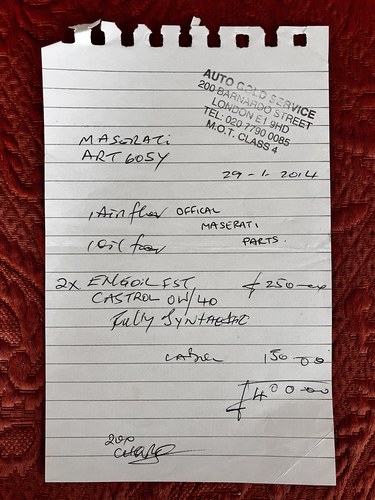 AUTO GOLD SERVICE
200 BARNARDO STREET
LONDON E1 9HD
TEL: 020 7790 0085
M.O.T. CLASS 4
MASERATI
ART 605Y
29-1-2014
1 Air filter OFFICAL
MASERATI
1 Oil filter PARTS.
2X ENGOIL FST £250-00
CASTROL 0W/40
Fully SYNTHAESTIC
LABour 150-00
£400-00